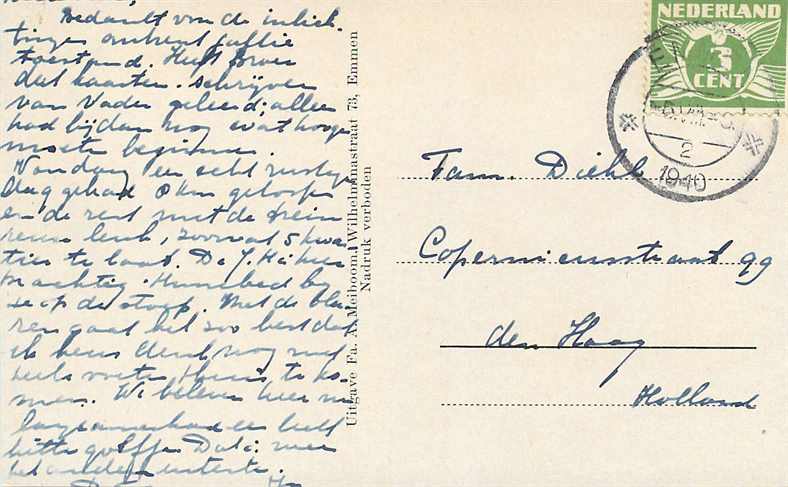 Bedankt voor de inlich-
tingen omtrent jullie
toestand. Heeft Broer
dat kaarten-schrijven
van Vader geleerd; alleen
had hij dan nog wat hooger
moeten beginnen.
Vandaag een echt rustige
dag gehad 8 km geloopen
en de rest met de trein
reuze leuk, zoowat 5 kwar
tier te laat. De J.H. is hier
prachtig. Hunebed bij
ze op de stoep. Met de bla-
ren gaat het zoo best dat
ik heus denk nog met
heele voeten thuis te ko-
men. We beleven hier
een heele
hitte golf
Uitgave Fa. A. Meiboom, Wilhelminastraat 73, Emmen
Nadruk verboden
NEDERLAND
3
CENT
2
1940
Fam. Diehl
Copernicusstraat 99
den Haag
Holland